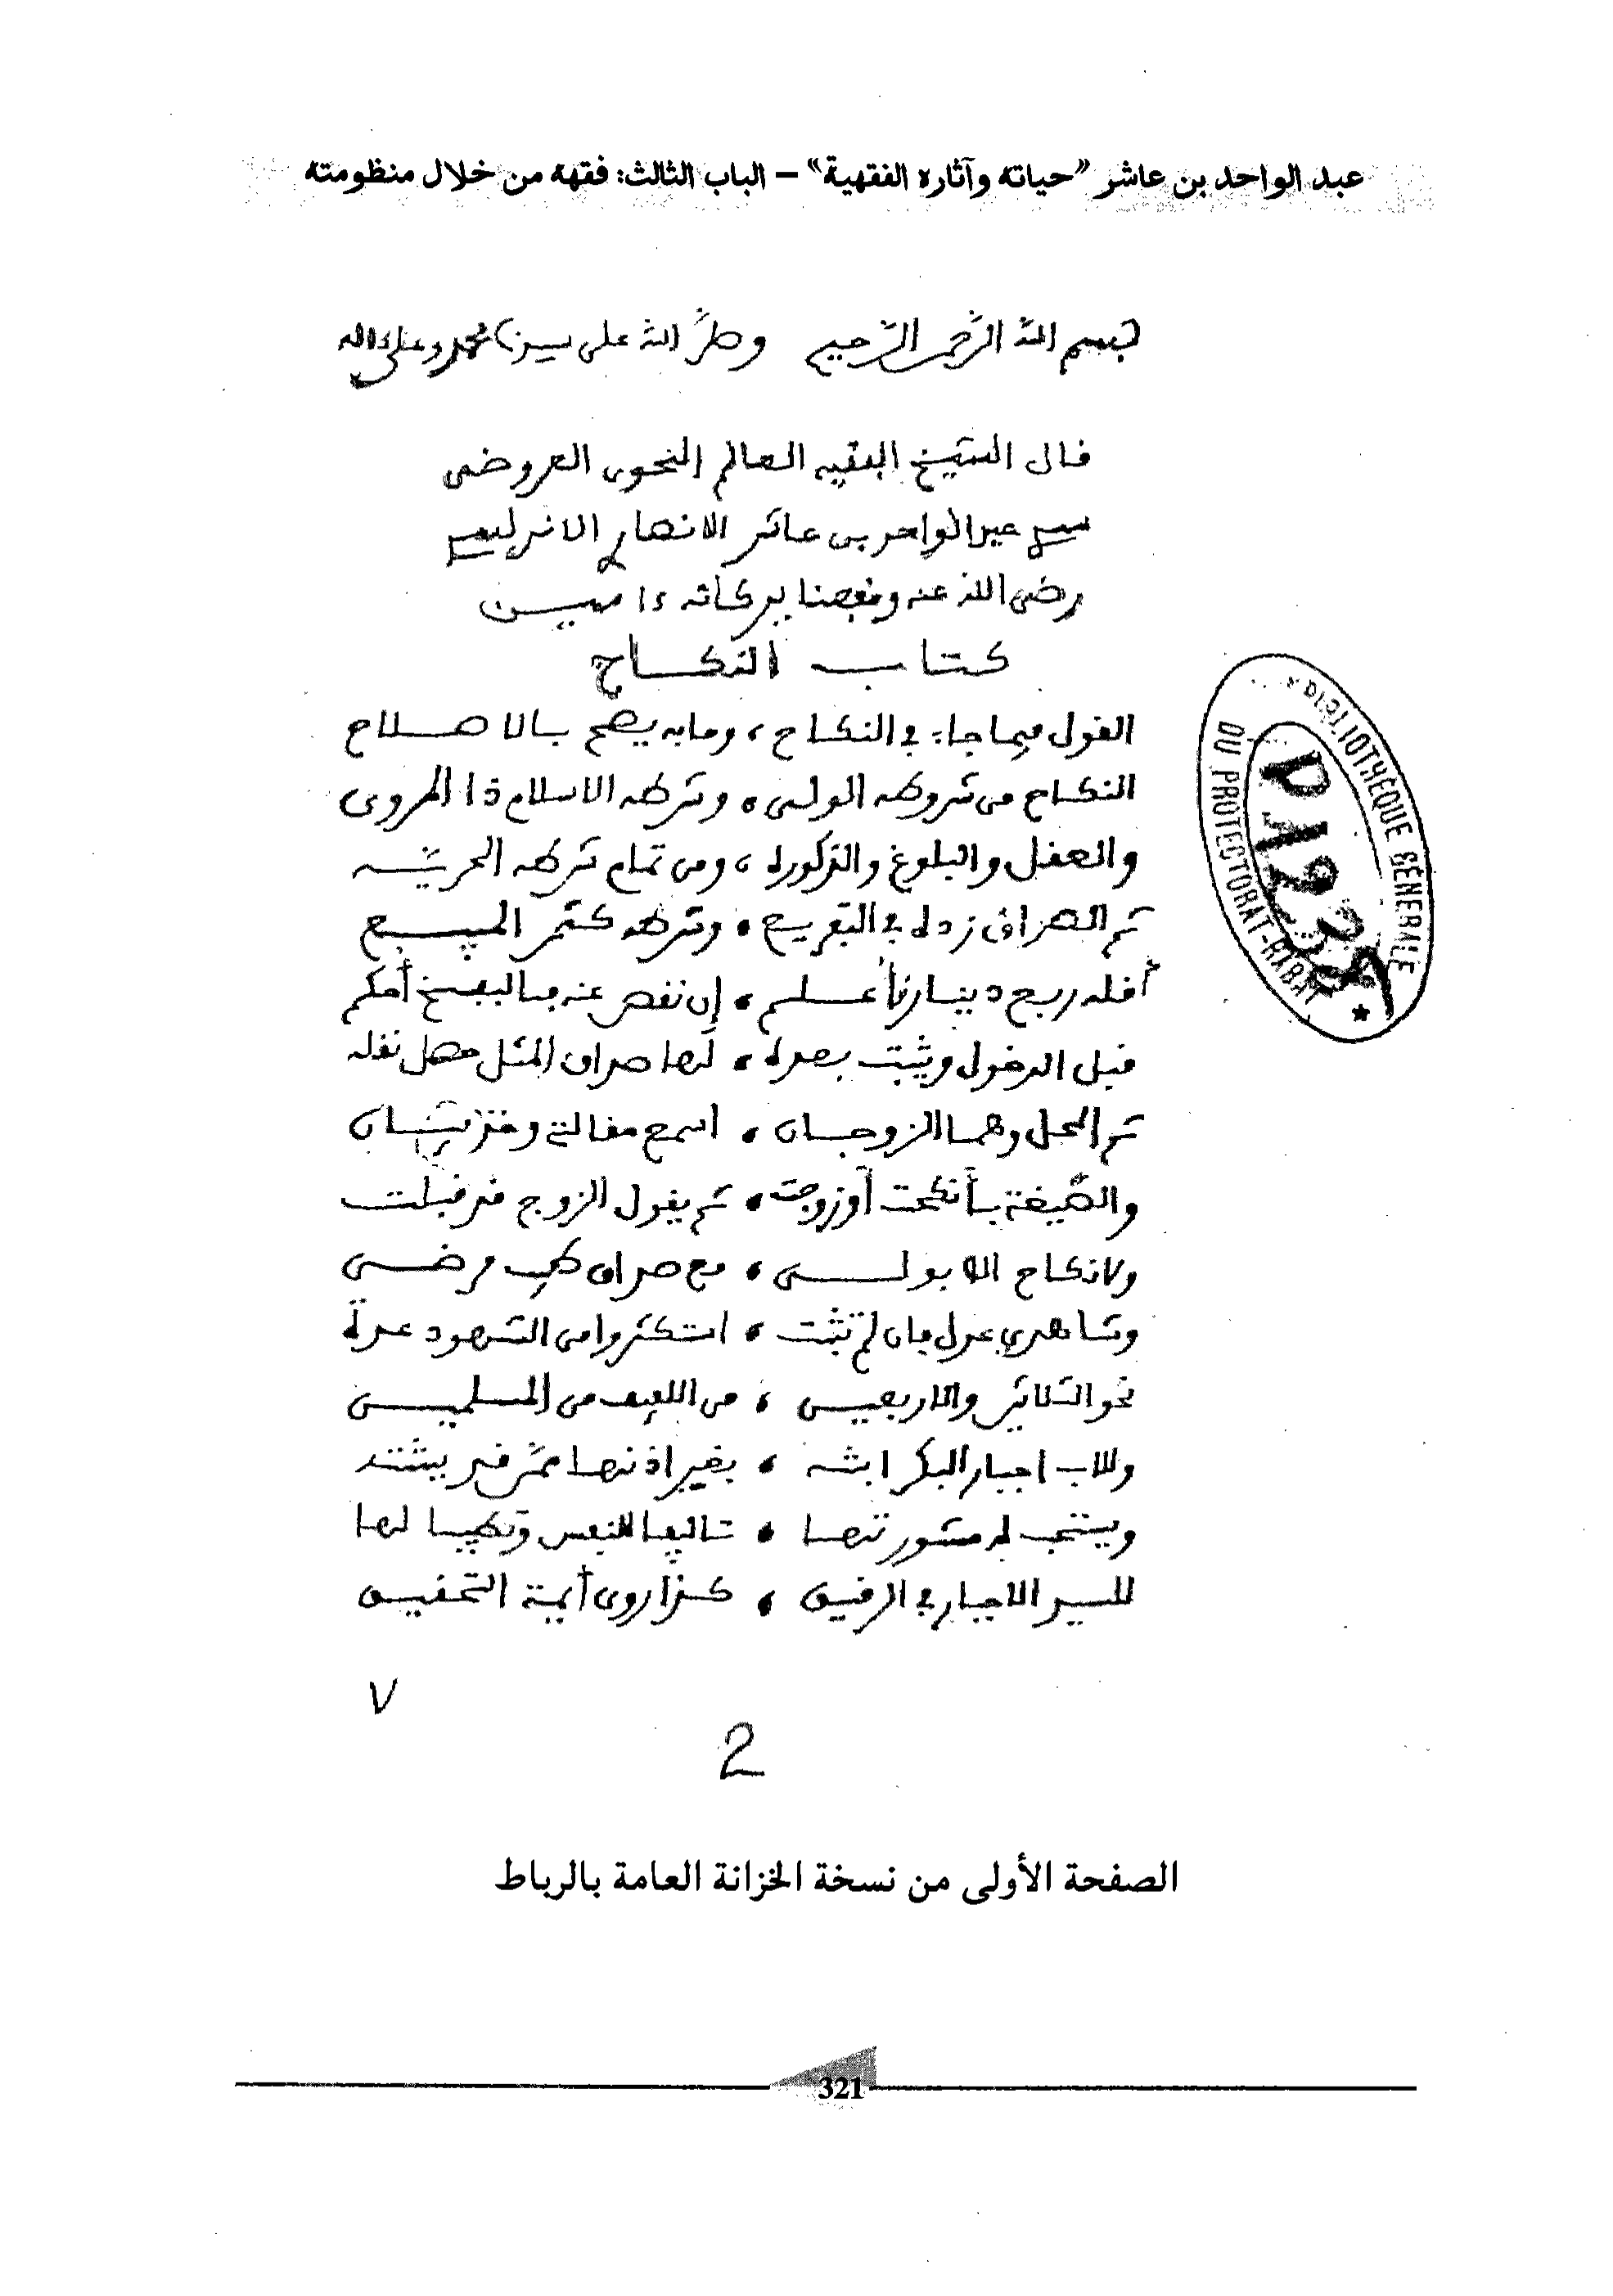 عبد الواحد بن عاشر "حياته وآثاره الفقهية" – الباب الثالث: فقهه من خلال منظومته
بسم الله الرحمن الرحيم وصلى الله على سيدنا محمد وعلى ءاله
قال الشيخ الفقيه العالم النحوي العروضي
سيدي عبد الواحد بن عاشر الانصاري الاندلسي
رضي الله عنه ونفعنا ببركاته ءامين
كتاب النكاح
القول فيما جاء في النكاح، وما به يصح بالاصلاح
النكاح من شروطه الولي، وشرطه الاسلام ذا المروي
والعقل والبلوغ والذكوريه، ومن تمام شرطه الحريّيه
ثم الصداق زده في التفريع، وشرطه كثمر المبيع
أقله ربع دينار فأعلم، إن نقص عنه فبالفسخ أحكم
قبل الدخول ويثبت بعده، لها صداق المثل حصل نقله
ثم المحل وهما الزوجان، اسمع مقالتي وخذ بيان
والصّيغة بأنكحت أو زوجت، ثم يقول الزوج قد قبلت
ولا نكاح الا بولي، مع صداق طيب مرضي
وشاهدي عدل فإن لم تثبت، استكثروا من الشهود عدة
نحو الثلاثين والاربعين، من اللفيف من المسلمين
وللاب اجبار البكر ابنته، بغير اذنها ممّن قد بينته
ويستحب له مشورتها، تاليفا للنفس وتطييبا لها
للسيد الاجبار في الرقيق، كذا روى أيمة التحقيق
٧
2
BIBLIOTHÈQUE GÉNÉRALE
DU PROTECTORAT-RABAT
الصفحة الأولى من نسخة الخزانة العامة بالرباط
321